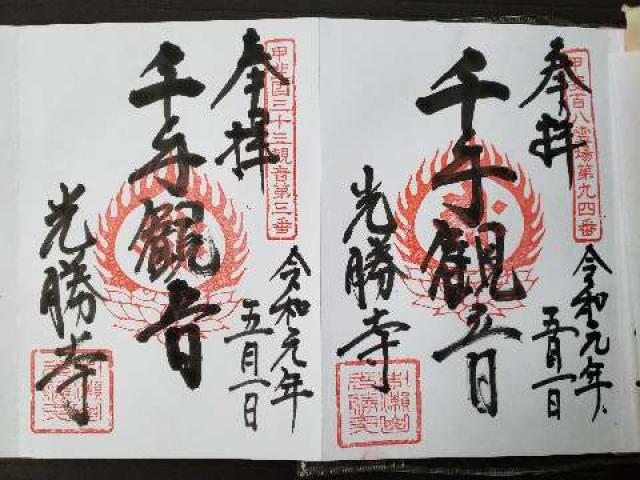 甲斐百八霊場第九四番
奉拝
千手観音
光勝寺
令和元年
五月一日
甲斐国三十三観音第三番
奉拝
千手観音
光勝寺
令和元年
五月一日